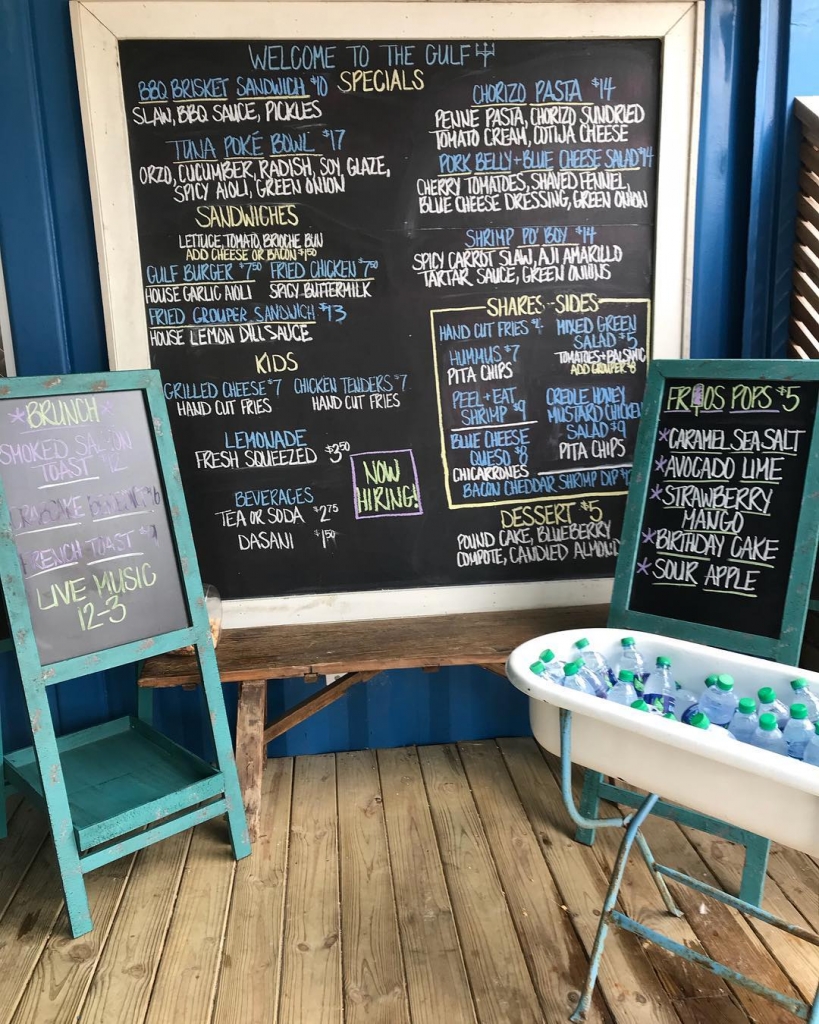 WELCOME TO THE GULF
SPECIALS
BBQ BRISKET SANDWICH $10
SLAW, BBQ SAUCE, PICKLES
TUNA POKÉ BOWL $17
ORZO, CUCUMBER, RADISH, SOY GLAZE,
SPICY AIOLI, GREEN ONION
SANDWICHES
LETTUCE, TOMATO, BRIOCHE BUN
ADD CHEESE OR BACON $1.50
GULF BURGER $7.50 FRIED CHICKEN $7.50
HOUSE GARLIC AIOLI SPICY BUTTERMILK
FRIED GROUPER SANDWICH $13
HOUSE LEMON DILL SAUCE
KIDS
GRILLED CHEESE $7 CHICKEN TENDERS $7
HAND CUT FRIES HAND CUT FRIES
LEMONADE
FRESH SQUEEZED $3.50
BEVERAGES
TEA OR SODA $2.75
DASANI $1.50
NOW
HIRING!
CHORIZO PASTA $14
PENNE PASTA, CHORIZO, SUNDRIED
TOMATO CREAM, COTIJA CHEESE
PORK BELLY + BLUE CHEESE SALAD $14
CHERRY TOMATOES, SHAVED FENNEL,
BLUE CHEESE DRESSING, GREEN ONION
SHRIMP PO' BOY $14
SPICY CARROT SLAW, AJI AMARILLO
TARTAR SAUCE, GREEN ONIONS
SHARES--SIDES
HAND CUT FRIES
HUMMUS $7
PITA CHIPS
PEEL + EAT
SHRIMP $9
BLUE CHEESE
QUESO $8
CHICARRONES
MIXED GREEN
SALAD $5
TOMATOES + BALSAMIC
ADD GROUPER $8
CREOLE HONEY
MUSTARD CHICKEN
SALAD $9
PITA CHIPS
BACON CHEDDAR SHRIMP DIP
DESSERT $5
POUND CAKE, BLUEBERRY
COMPOTE, CANDIED ALMOND
BRUNCH
SMOKED SALMON
TOAST $12
FRENCH TOAST
LIVE MUSIC
12-3
FRIOS POPS $5
*CARAMEL SEA SALT
*AVOCADO LIME
*STRAWBERRY
MANGO
*BIRTHDAY CAKE
*SOUR APPLE